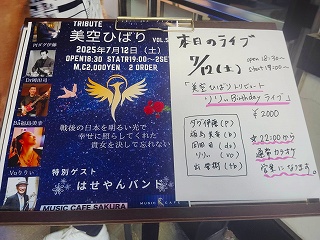 TRIBUTE
美空ひばり VOL.5
2025年7月12日(土)
OPEN18:30 STATR19:00~2SET
M,C2,000YEN 2 ORDER
戦後の日本を明るい光で
幸せに照らしてくれた
貴女を決して忘れない
特別ゲスト
はせやんバンド
MUSIC CAFE SAKURA
MUSIC CAFE
Pfダグ伊藤
Ds岡田司
Voりりぃ
本日のライブ
7/12(土)
open 18:30~
start 19:00~
「美空ひばりトリビュート
りりぃBirthdayライブ」
¥2000
ダグ伊藤(p)
福島英幸(b)
岡田司(ds)
りりぃ(vo)
(tb)
★22:00から
通常カラオケ
営業になります。